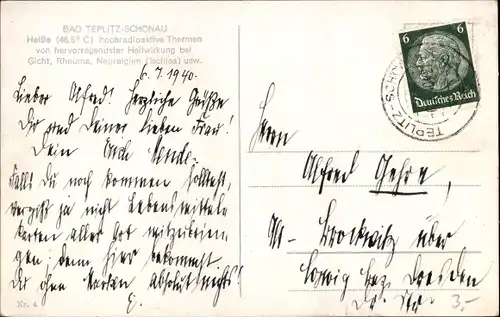 BAD TEPLITZ-SCHÖNAU
Heiße (46,5° C) hochradioaktive Thermen
von hervorragendster Heilwirkung bei
Gicht, Rheuma, Neuralgien (Ischias) usw.
6. 7. 1940.
Lieber Alfred! Herzliche Grüße
Dir und Deiner lieben Frau!
Dein
Falls Du noch kommen solltest,
vergiß ja nicht Lebensmittel-
karten aller Art mitzubrin-
gen; denn hier bekommst
Du ohne Marken absolut nichts!
Nr. 4
6 6
Deutsches Reich
TEPLITZ-SCHÖN
Herrn
Alfred Gehre,
Brockwitz über
Coswig Bez. Dresden
3.-